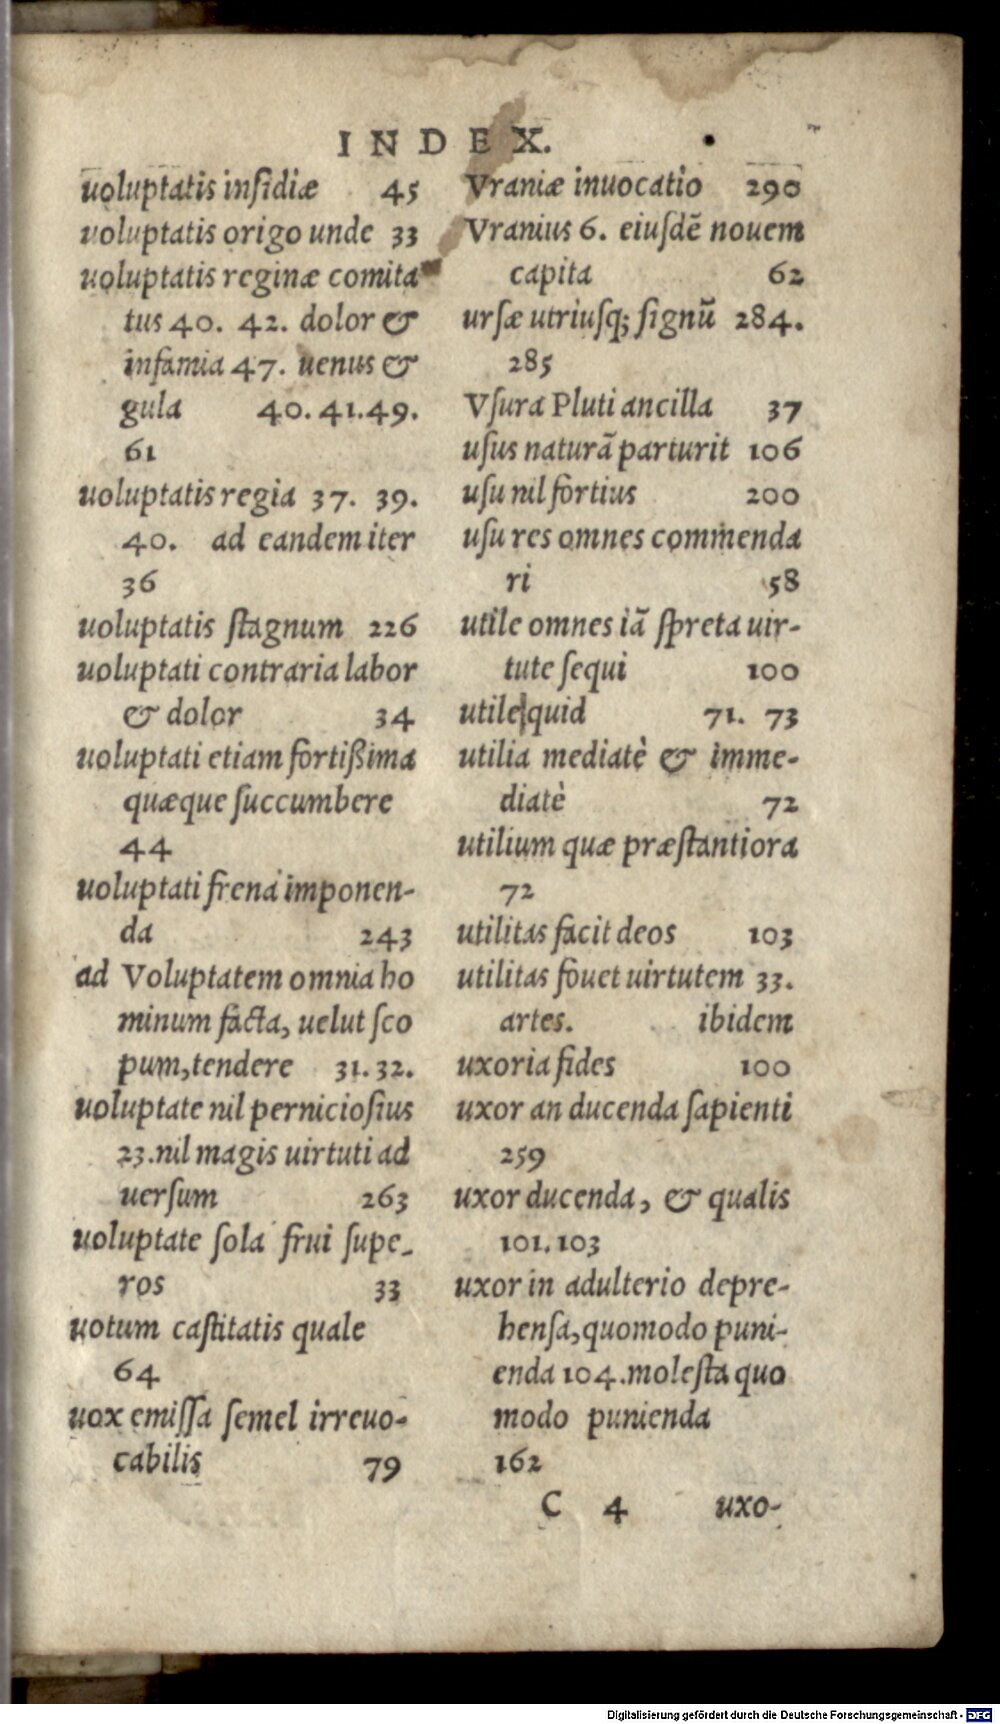 INDEX.
uoluptatis insidiæ 45
uoluptatis origo unde 33
uoluptatis reginæ comita
tus 40. 42. dolor &
infamia 47. uenus &
gula 40. 41. 49.
61
uoluptatis regia 37. 39.
40. ad eandem iter
36
uoluptatis stagnum 226
uoluptati contraria labor
& dolor 34
uoluptati etiam fortißima
quæque succumbere
44
uoluptati frena imponen-
da 243
ad Voluptatem omnia ho
minum facta, uelut sco
pum, tendere 31. 32.
uoluptate nil perniciosius
23. nil magis uirtuti ad
uersum 263
uoluptate sola frui supe-
ros 33
uotum castitatis quale
64
uox emissa semel irreuo-
cabilis 79
Vraniæ inuocatio 290
Vranius 6. eiusdẽ nouem
capita 62
ursæ utriusq; signũ 284.
285
Vsura Pluti ancilla 37
usus naturã parturit 106
usu nil fortius 200
usu res omnes commenda
ri 58
utile omnes iã spreta uir-
tute sequi 100
utile quid 71. 73
utilia mediatè & imme-
diatè 72
utilium quæ præstantiora
72
utilitas facit deos 103
utilitas fouet uirtutem 33.
artes. ibidem
uxoria fides 100
uxor an ducenda sapienti
259
uxor ducenda, & qualis
101. 103
uxor in adulterio depre-
hensa, quomodo puni-
enda 104. molesta quo
modo punienda
162
C 4 uxo-
Digitalisierung gefördert durch die Deutsche Forschungsgemeinschaft - DFG